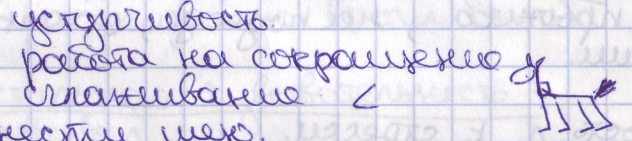 уступчивость.
работа на сокращение
сглаживание <
нести шею.